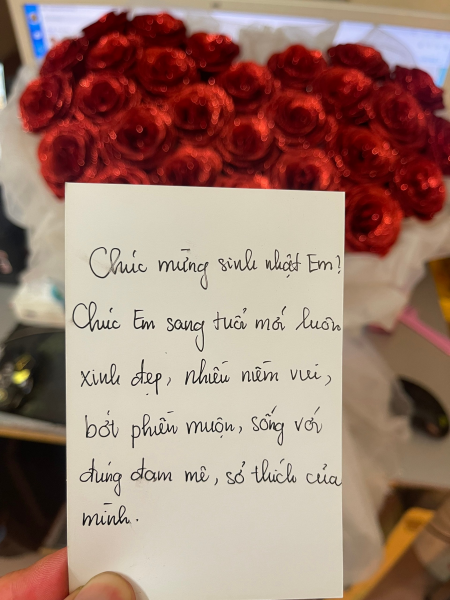 Chúc mừng sinh nhật Em!
Chúc Em sang tuổi mới luôn
xinh đẹp, nhiều niềm vui,
bớt phiền muộn, sống với
đúng đam mê, sở thích của
mình.